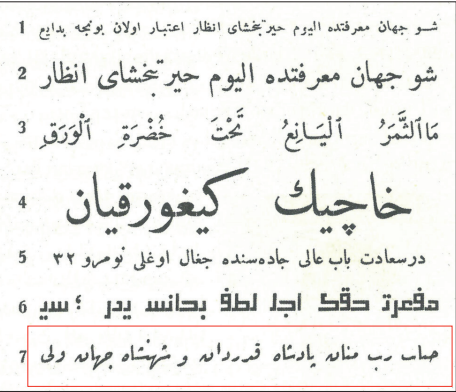 1 شو جهان معرفتده اليوم حيرتبخشاى انظار اعتبار اولان بونجه بدايع
2 شو جهان معرفتده اليوم حيرتبخشاى انظار
3 مَاالثَّمَرُ ٱلْيَانِعُ تَحْتَ خُضْرَةِ ٱلْوَرَقِ
4 خاچيك كيغورقيان
5 درسعادت باب عالى جاده‌سنده جغال اوغلى نومرو ٣٢
6 اجل لطف يدر ؛ سيد
7 جناب رب منان پادشاه قدردان و شهنشاه جهان ولى